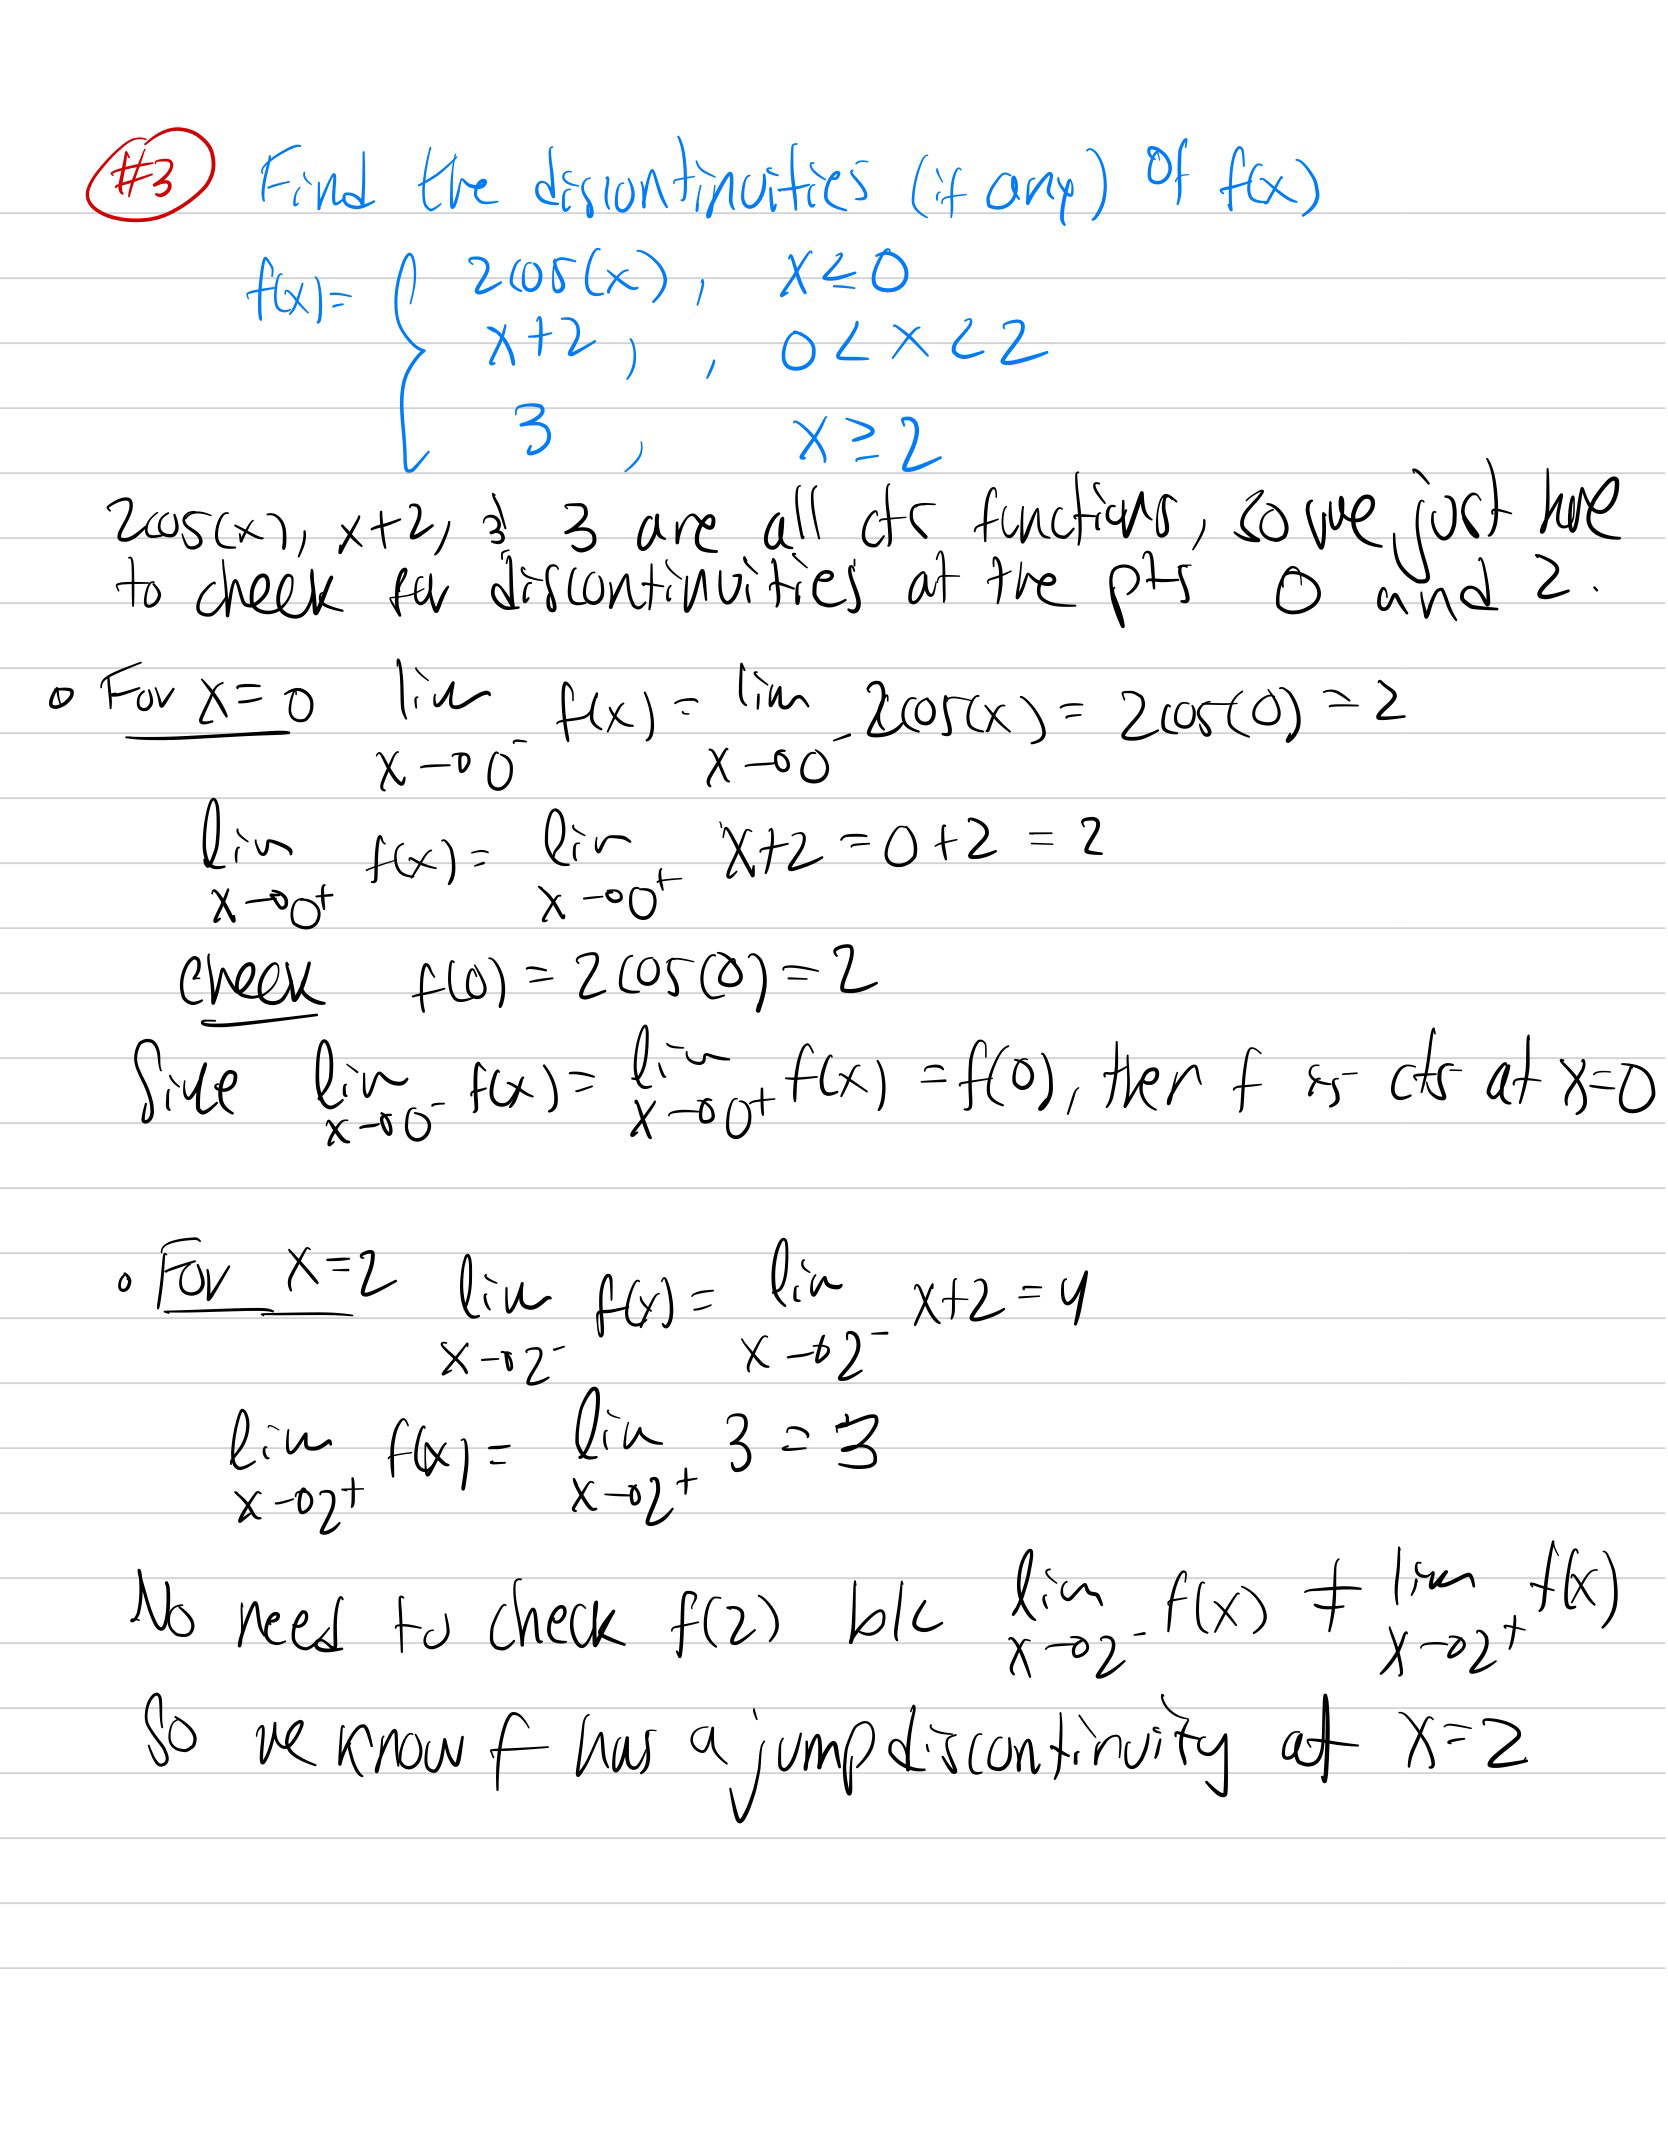 #3 Find the discontinuities (if any) of f(x)
f(x) = { 2cos(x), x ≤ 0
x+2, , 0 < x < 2
3 , x ≥ 2
2cos(x), x+2, & 3 are all cts functions, so we just have
to check for discontinuities at the pts 0 and 2.
• For x=0 lim x→0⁻ f(x) = lim x→0⁻ 2cos(x) = 2cos(0) = 2
lim x→0⁺ f(x) = lim x→0⁺ x+2 = 0+2 = 2
check f(0) = 2cos(0) = 2
Since lim x→0⁻ f(x) = lim x→0⁺ f(x) = f(0), then f is cts at x=0
• For x=2 lim x→2⁻ f(x) = lim x→2⁻ x+2 = 4
lim x→2⁺ f(x) = lim x→2⁺ 3 = 3
No need to check f(2) b/c lim x→2⁻ f(x) ≠ lim x→2⁺ f(x)
So we know f has a jump discontinuity at x=2